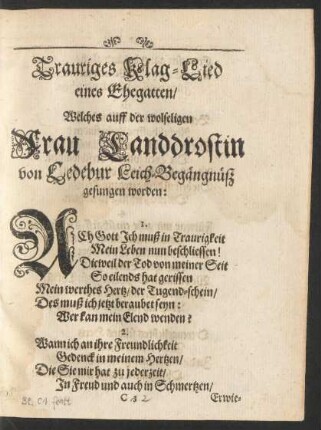 Trauriges Klag-Lied
eines Ehegatten/
Welches auff der wolseligen
Frau Landdrostin
von Ledebur Leich-Begängnüß
gesungen worden:
1.
ACh Gott Jch muß in Traurigkeit
Mein Leben nun beschliessen!
Dieweil der Tod von meiner Seit
So eilends hat gerissen
Mein werthes Hertz/ der Tugend-schein/
Des muß ich jetzt beraubet seyn:
Wer kan mein Elend wenden?
2.
Wann ich an ihre Freundlichkeit
Gedenck in meinem Hertzen/
Die Sie mir hat zu jederzeit/
Jn Freud und auch in Schmertzen/
Erwie-